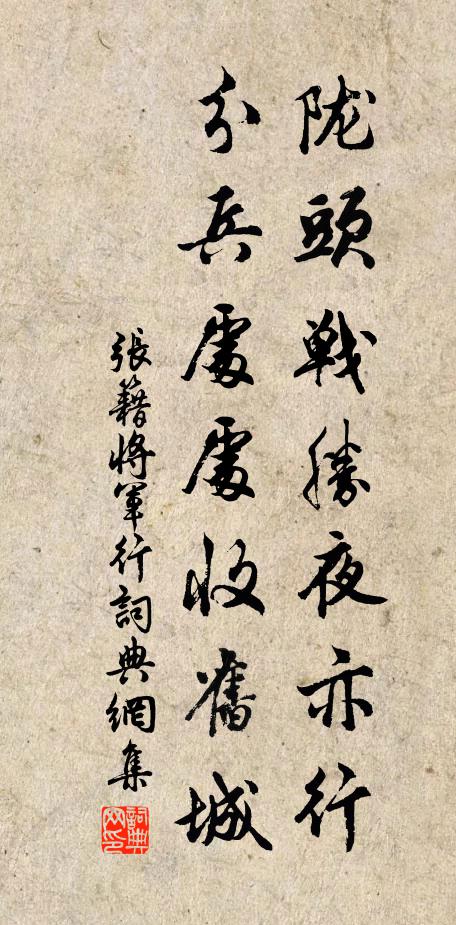 陇頭戰勝夜亦行
分兵處處收舊城
張籍將軍行詞典網集
詞典网印